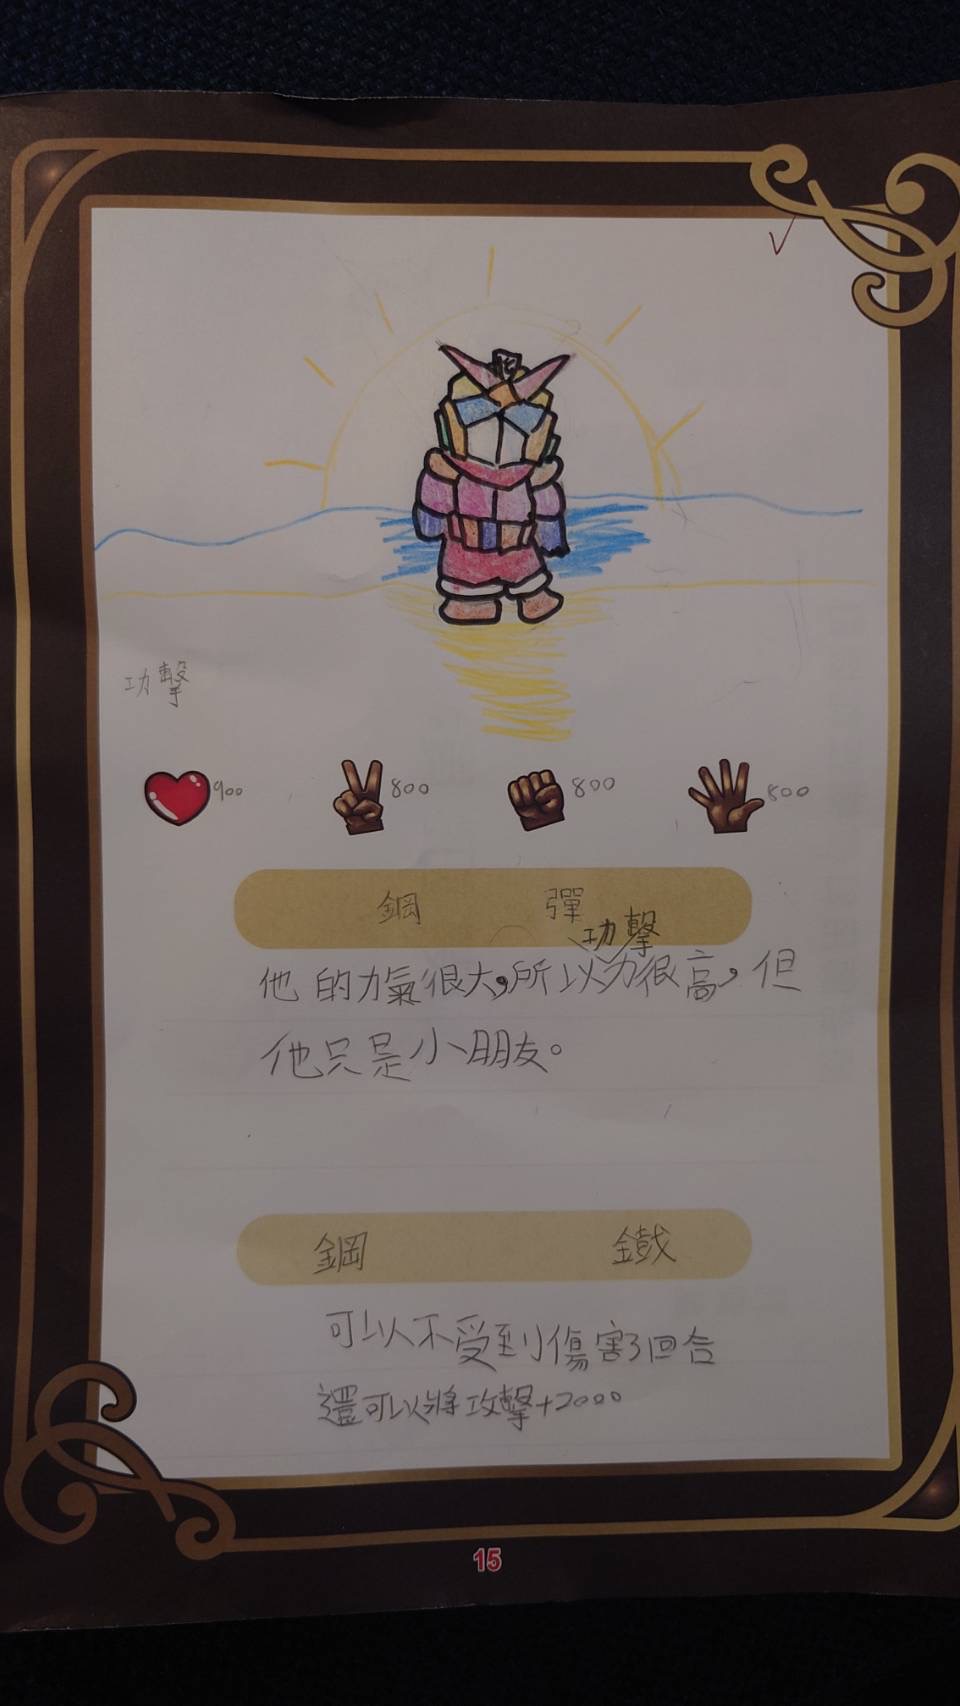 功擊
900 800 800 800
鋼 彈
功擊
他的力氣很大,所以力很高,但
他只是小朋友。
鋼 鐵
可以不受到傷害3回合
還可以將攻擊+2000
15